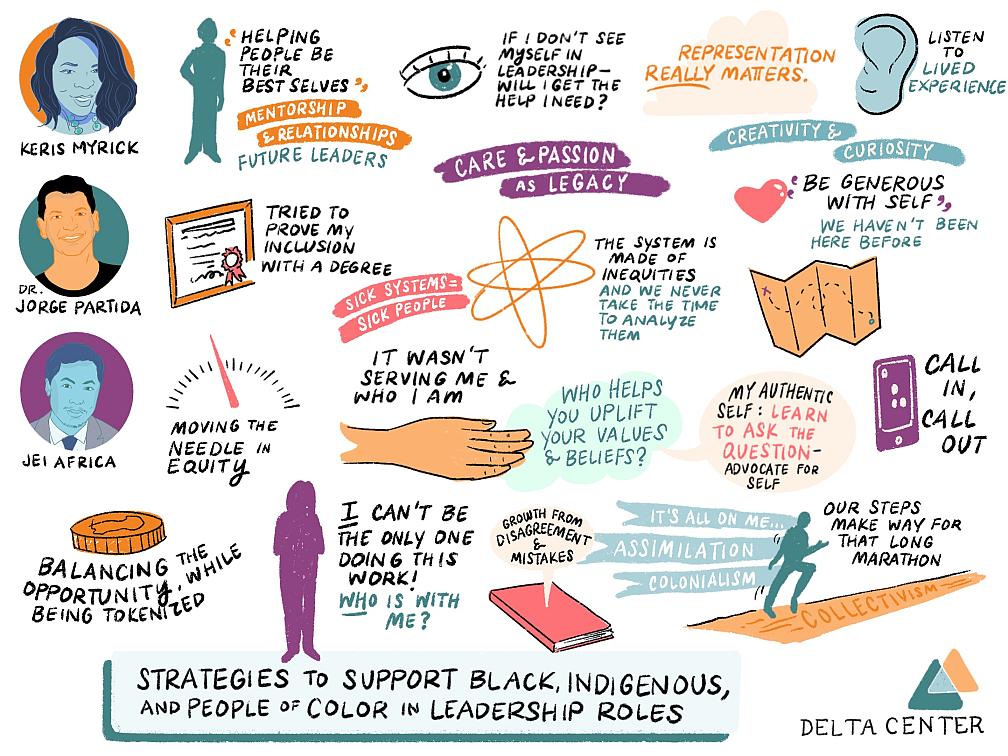 KERIS MYRICK
"HELPING
PEOPLE BE
THEIR
BEST SELVES"
MENTORSHIP
& RELATIONSHIPS
FUTURE LEADERS
IF I DON'T SEE
MYSELF IN
LEADERSHIP—
WILL I GET THE
HELP I NEED?
REPRESENTATION
REALLY MATTERS.
LISTEN
TO
LIVED
EXPERIENCE
CARE & PASSION
AS LEGACY
CREATIVITY &
CURIOSITY
"BE GENEROUS
WITH SELF"
WE HAVEN'T BEEN
HERE BEFORE
DR.
JORGE PARTIDA
TRIED TO
PROVE MY
INCLUSION
WITH A DEGREE
SICK SYSTEMS=
SICK PEOPLE
THE SYSTEM IS
MADE OF
INEQUITIES
AND WE NEVER
TAKE THE TIME
TO ANALYZE
THEM
JEI AFRICA
MOVING THE
NEEDLE IN
EQUITY
IT WASN'T
SERVING ME &
WHO I AM
WHO HELPS
YOU UPLIFT
YOUR VALUES
& BELIEFS?
MY AUTHENTIC
SELF: LEARN
TO ASK THE
QUESTION-
ADVOCATE FOR
SELF
CALL
IN,
CALL
OUT
BALANCING THE
OPPORTUNITY, WHILE
BEING TOKENIZED
I CAN'T BE
THE ONLY ONE
DOING THIS
WORK!
WHO IS WITH
ME?
GROWTH FROM
DISAGREEMENT
&
MISTAKES
IT'S ALL ON ME...
ASSIMILATION
COLONIALISM
OUR STEPS
MAKE WAY FOR
THAT LONG
MARATHON
COLLECTIVISM
STRATEGIES TO SUPPORT BLACK, INDIGENOUS,
AND PEOPLE OF COLOR IN LEADERSHIP ROLES
DELTA CENTER